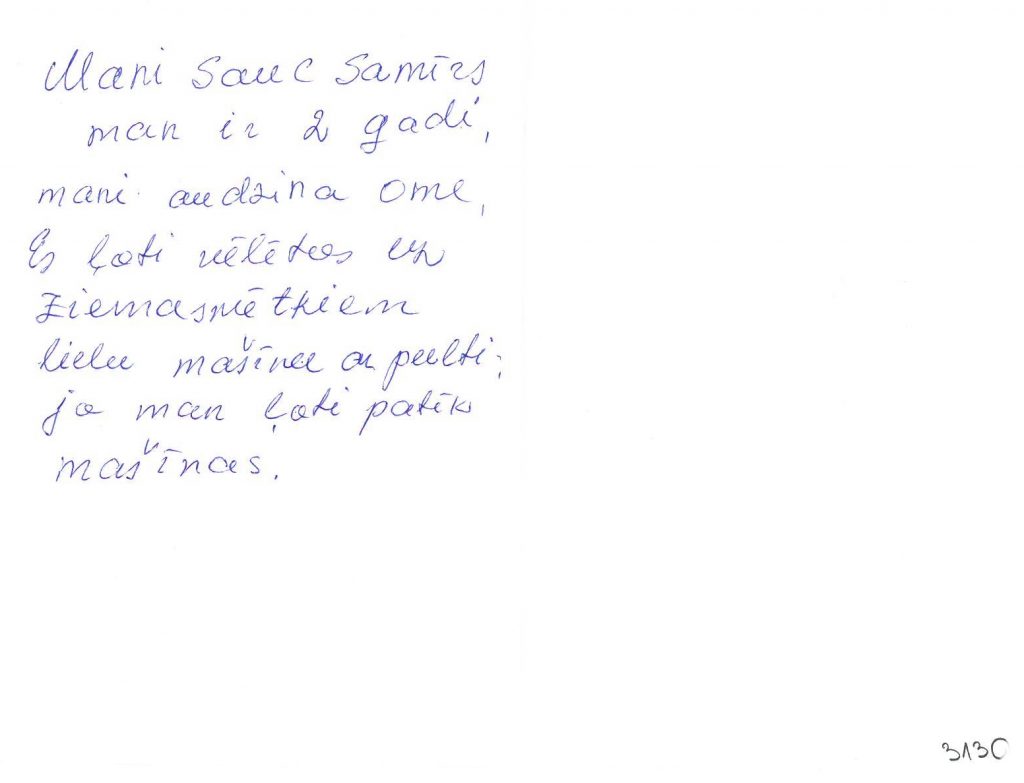 Mani sauc Samīrs
man ir 2 gadi,
mani audzina ome,
Es ļoti vēlētos uz
Ziemasvētkiem
lielu mašīnu ar pulti,
jo man ļoti patīk
mašīnas.
3130